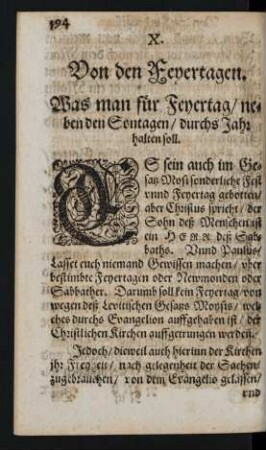 394
X.
Von den Feyertagen.
Was man für Feyertag/ ne-
ben den Sontagen/ durchs Jahr
halten soll.
ES sein auch im Ge-
satz Mosi sonderliche Fest
vnnd Feyertag gebotten/
aber Christus spricht/ der
Sohn deß Menschen ist
ein HERR deß Sab-
baths. Vnnd Paulus/
Lasset euch niemand Gewissen machen/ vber
bestimbte Feyertagen oder Newmonden oder
Sabbather. Darumb soll kein Feyertag/ von
wegen deß Levitischen Gesatzs Moysis/ wel-
ches durchs Evangelion auffgehaben ist/ der
Christlichen Kirchen auffgetrungen werden.
Jedoch/ dieweil auch hierinn der Kirchen
jhr Freyheit/ nach gelegenheit der Sachen
zugebrauchen/ von dem Evangelio gelassen/
vnd